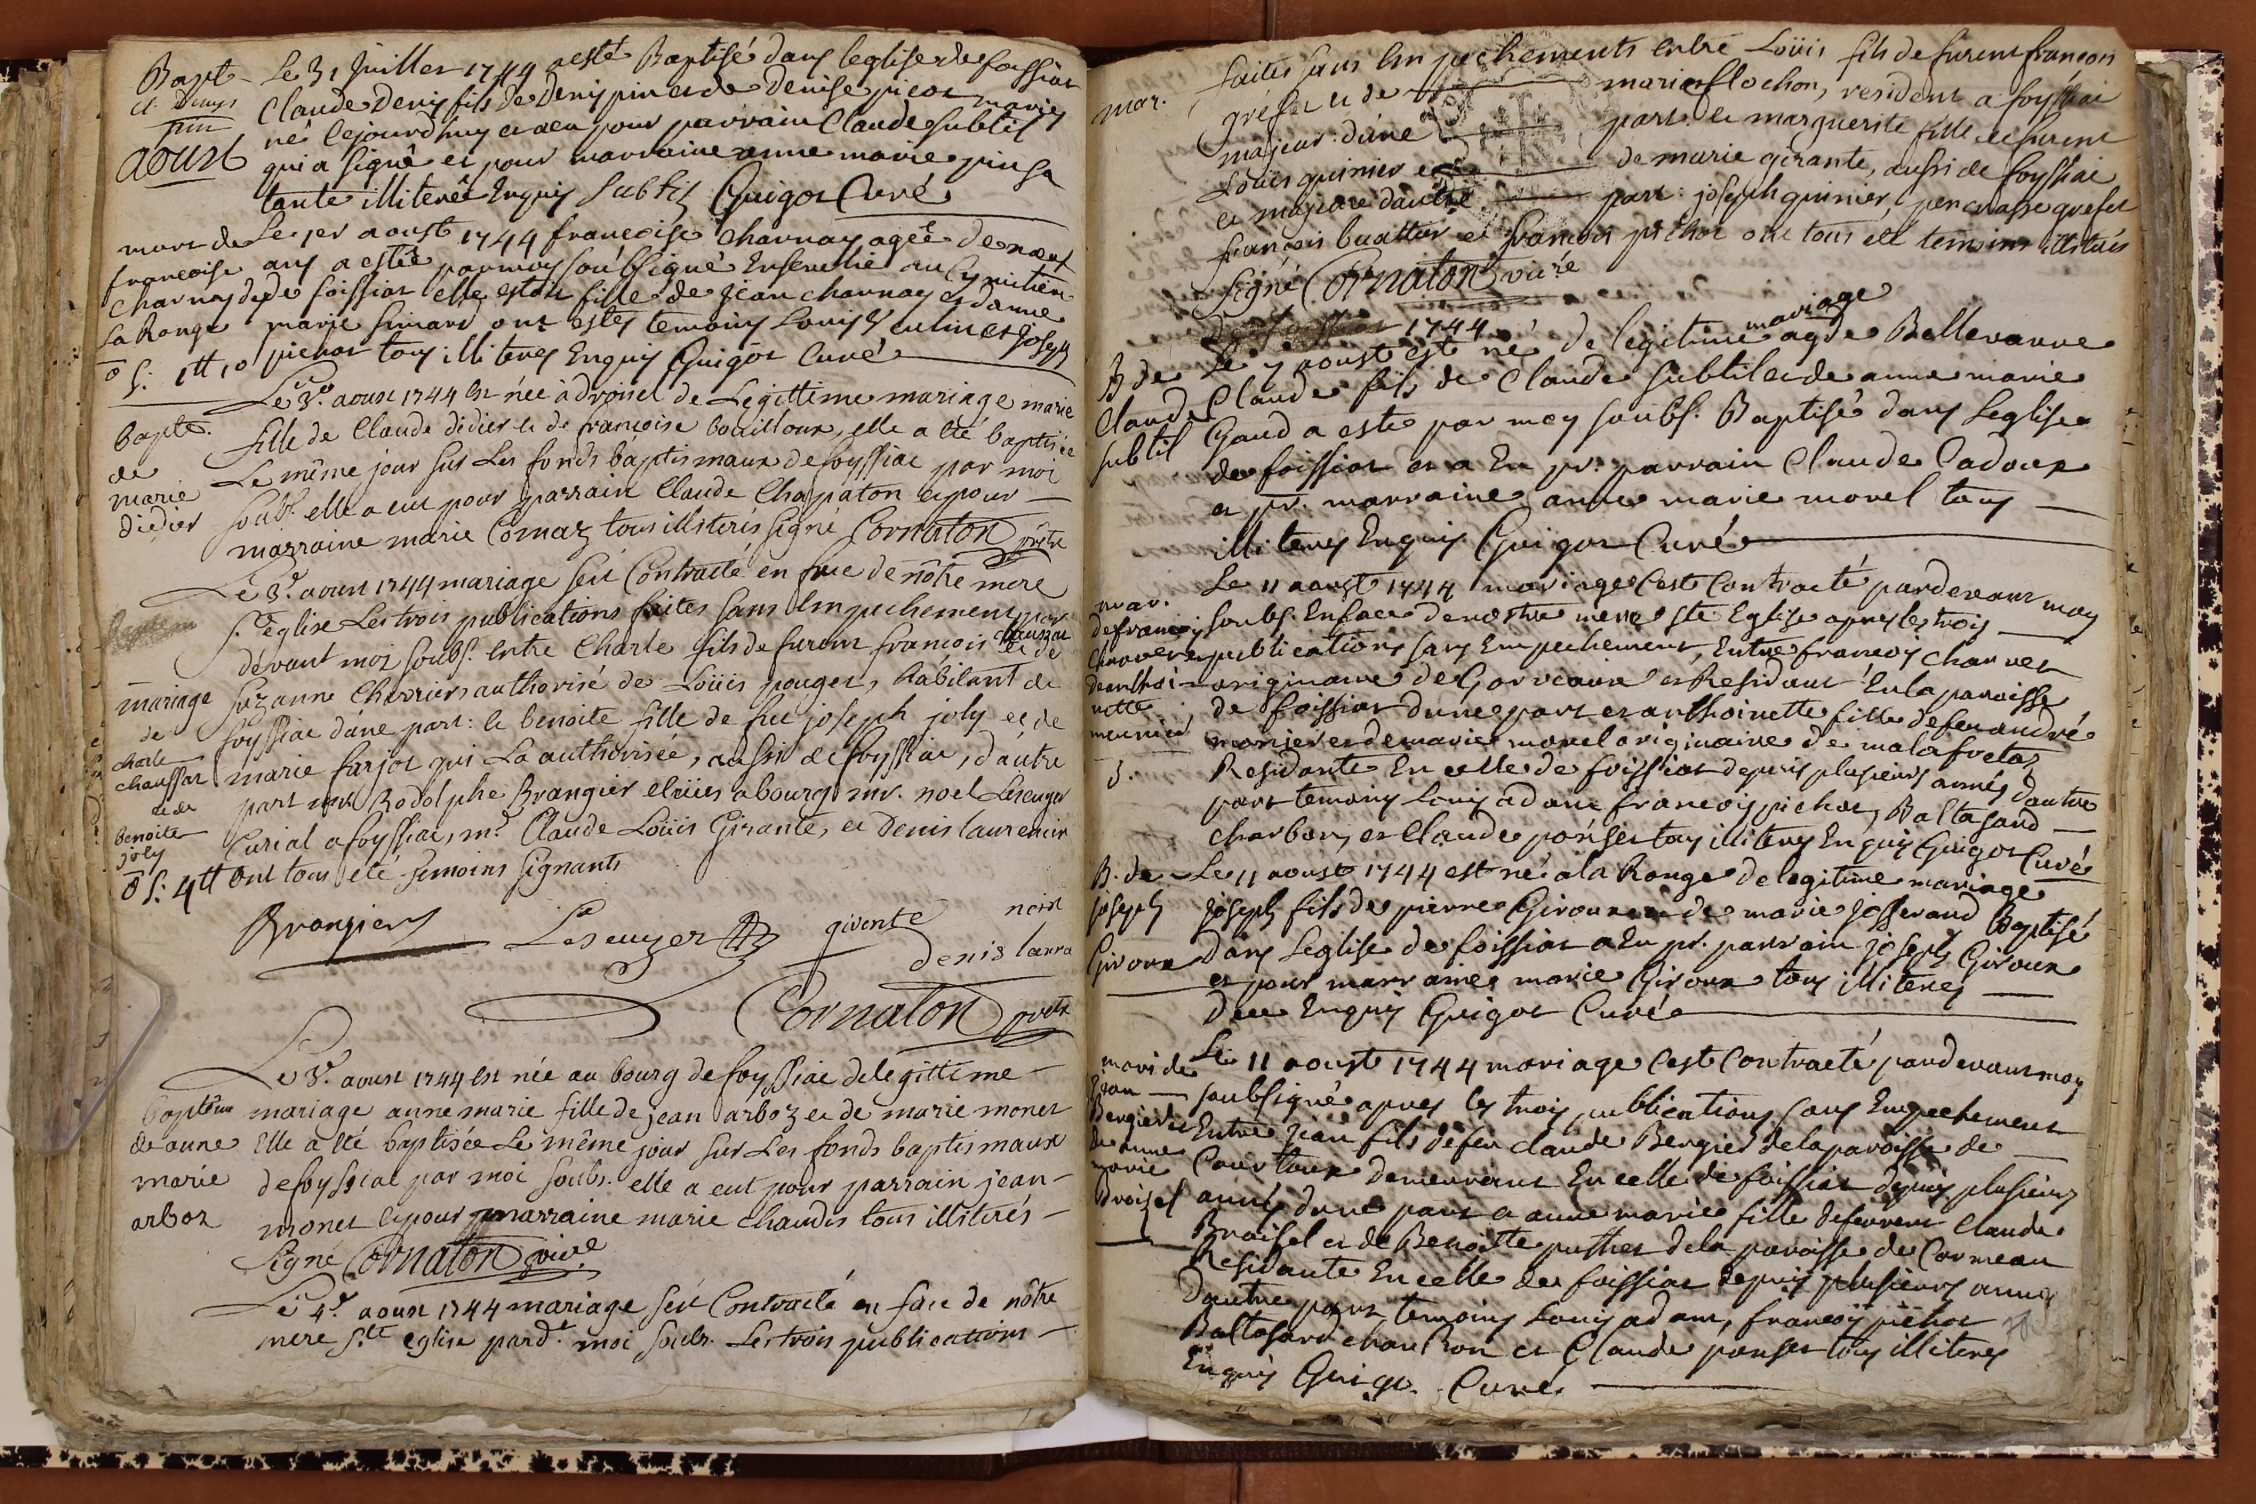 Bapt Le 31 Juillet 1744 a esté Baptisé dans leglise de foissiat
cl. Denys Claude Denis fils de Denis pin et de Denise picot mariés
pin né lejourdhuy et a eu pour parrain Claude subtil
aoust qui a signé et pour marraine anne marie pin sa
tante illiteré Enquis Subtil Guigot Curé
mort de Le 1er aoust 1744 francoise Charnay agée de neuf
francoise ans a estée par moy soubsigné Ensevelie au Cymitiere
Charnay de de foissiat elle estoit fille de Jean charnay et danne
La Ronge marie simard ont estés temoins Louis et Joseph
ō S: 1tt 10 pichot tous illiterés Enquis Guigot Curé
Le 3e. aoust 1744 Est née à droisel de Legittime mariage marie
bapte. fille de Claude didier et de francoise bouilloux, elle a été baptisée
de Le même jour sur Les fonds baptismaux de foyssiac par moi
marie soubs. elle a eut pour parrain Claude Chapaton et pour
didier marraine marie Cornaz tous illiterés signé Cornaton prêtre
Le 3e. aoust 1744 mariage s'est Contracté en face de nôtre mere
ste. église Les trois publications faites sans Empechement par
dévant moi soubs. entre Charle fils de furent francois chaussat et de
mariage Suzanne Charriere authorisé de Loüis pouget, habitant de
de foyssiac d'une part: et benoite fille de feu joseph joly et de
charle
chaussat marie farjot qui La authorisée, aussi de foyssiac, d'autre
et de part Rodolphe Brangier a bourg mr. noel Leseuyer
benoite Curial a foyssiac, mr. Claude Loüis Girante, et Denis laurencin
joly
ō S: 4tt Ont tous été témoins signants
Brangier Leseuyer givente noin
denis laura
Cornaton prêtre
Le 3e. aoust 1744 Est née au bourg de foyssiac de legittime
baptême mariage anne marie fille de jean arboz et de marie monet
de anne Elle a été baptisée Le même jour sur Les fonds baptismaux
marie de foyssiac par moi soubs. elle a eut pour parrain jean
arboz monet et pour marraine marie Chaudis tous illiterés
Signé Cornaton vice
Le 4e. aoust 1744 mariage s'est Contracté en face de nôtre
mere ste. église pard.t moi soubs. Les trois publications
faites sans Empechements entre Loüis fils de furent francois
mar. grefet et de marie flochon, resident a foyssiac
majeur d'une part. et marguerite fille de furent
Loüis guinier et de marie girante, aussi de foyssiac
et majeure d'autre part: joseph guinier, grefet
françois buattier et francois pichot ont tous été temoins illiterés
Signé Cornaton vice
1744 mariage
B de Le 7 aoust est né de legitime age Bellevavre
Claude Claude fils de Claude subtil et de anne marie
subtil Gaud a esté par moy soubs. Baptisé dans Leglise
de foissiat et a Eu pr. parrain Claude Cadoux
et pr. marraine anne marie morel tous
illiterés Enquis Guigot Curé
Le 11 aoust 1744 mariage c'est Contracté pardevant moy
mar. soubs. En face de nostre mere ste Eglise apres les trois
de francois
Charvet et publications sans Empechement, Entre francoy charvet
de antoi- originaire de Gorveaux et Residant En la paroisse
nette de foissiat dune part et anthoinette fille de feu andré
meunier monier et de marie morel originaire de malafretaz
3. Residante En celle de foissiat depuis plusieurs années dautre
part temoins Louis adam francoy pichot, Baltasard
charbon, et Claude ponset tous illiterés Enquis Guigot Curé
B. de Le 11 aoust 1744 est né a la Ronge de legitime mariage
joseph joseph fils de pierre Giroux et de marie josserand Baptisé
Giroux dans Leglise de foissiat a Eu pr. parrain joseph Giroux
et pour marraine marie Giroux tous illiterés
Due Enquis Guigot Curé
mari de Le 11 aoust 1744 mariage c'est Contracté pardevant moy
jean soubsigné apres les trois publications sans Empechement
Bergier et Entre jean fils defeu claude Bergier de la paroisse de
de anne
marie Courtoux demeurant En celle de foissiat depuis plusieurs
Broisel année dune part a anne marie fille defurent Claude
Broisel et de Benoitte puthet de la paroisse de Cormeau
Residante En celle de foissiat depuis plusieurs année
dautre part, temoins Louis adam, francoy pichot
Baltasard charbon et Claude ponset tous illiterés
Enquis Guigo Curé